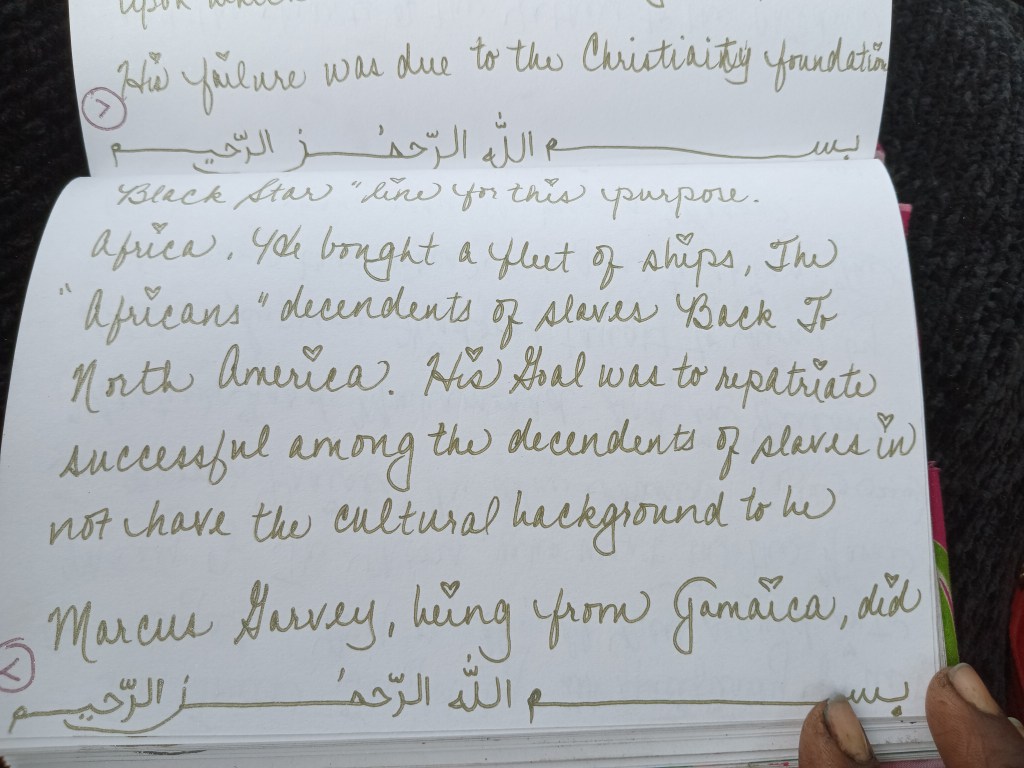 upon which
His failure was due to the Christiainty foundation
بســـــم اللّٰه الرّحمٰـــــن الرّحيـــم
Black Star "line for this purpose.
Africa. He bought a fleet of ships, The
"Africans" decendents of slaves Back To
North America. His Goal was to repatriate
successful among the decendents of slaves in
not have the cultural background to be
Marcus Garvey, being from Jamaica, did
بســـــم اللّٰه الرّحمٰـــــن الرّحيـــم